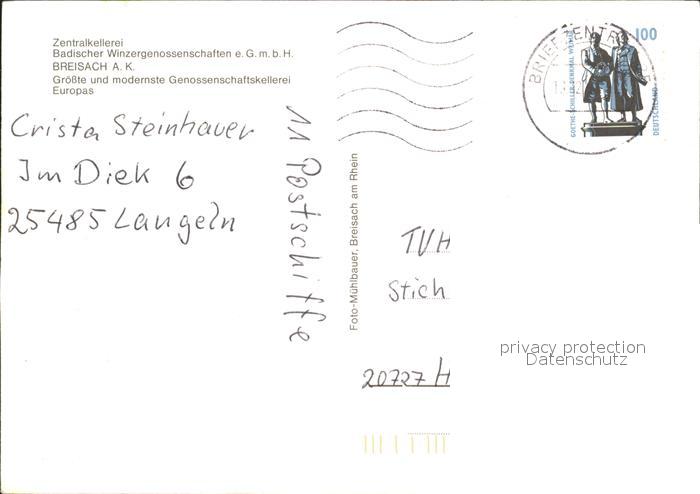 Zentralkellerei
Badischer Winzergenossenschaften e. G. m. b. H.
BREISACH A. K.
Größte und modernste Genossenschaftskellerei
Europas
Crista Steinhauer
Im Diek 6
25485 Langeln
11 Postschiffe
Foto-Mühlbauer, Breisach am Rhein
BRIEFZENTR
GOETHE-SCHILLER-DENKMAL WEIMAR
100
DEUTSCHLAND
TVH
Stich
20727 H
privacy protection
Datenschutz